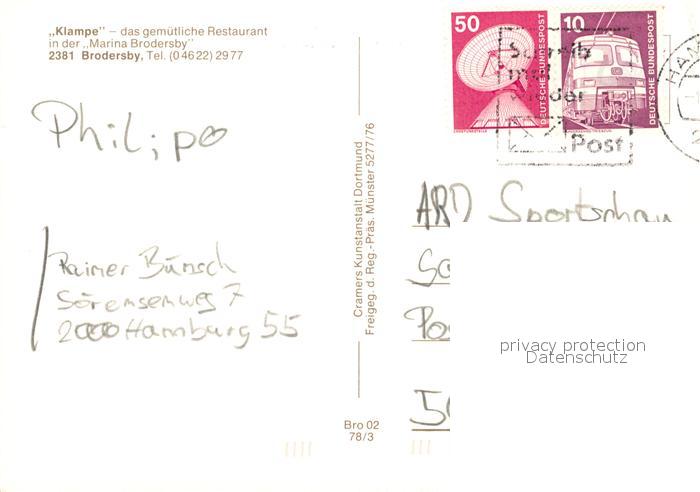 „Klampe" – das gemütliche Restaurant
in der „Marina Brodersby"
2381 Brodersby, Tel. (04622) 2977
50
DEUTSCHE BUNDESPOST
10
DEUTSCHE BUNDESPOST
Schreib
mal
wieder
Post
HAM
Philipo
Cramers Kunstanstalt Dortmund
Freigeg. d. Reg.-Präs. Münster 5277/76
ARD Sportschau
Rainer Bünsch
Sörensenweg 7
2000 Hamburg 55
Po
50
privacy protection
Datenschutz
Bro 02
78/3